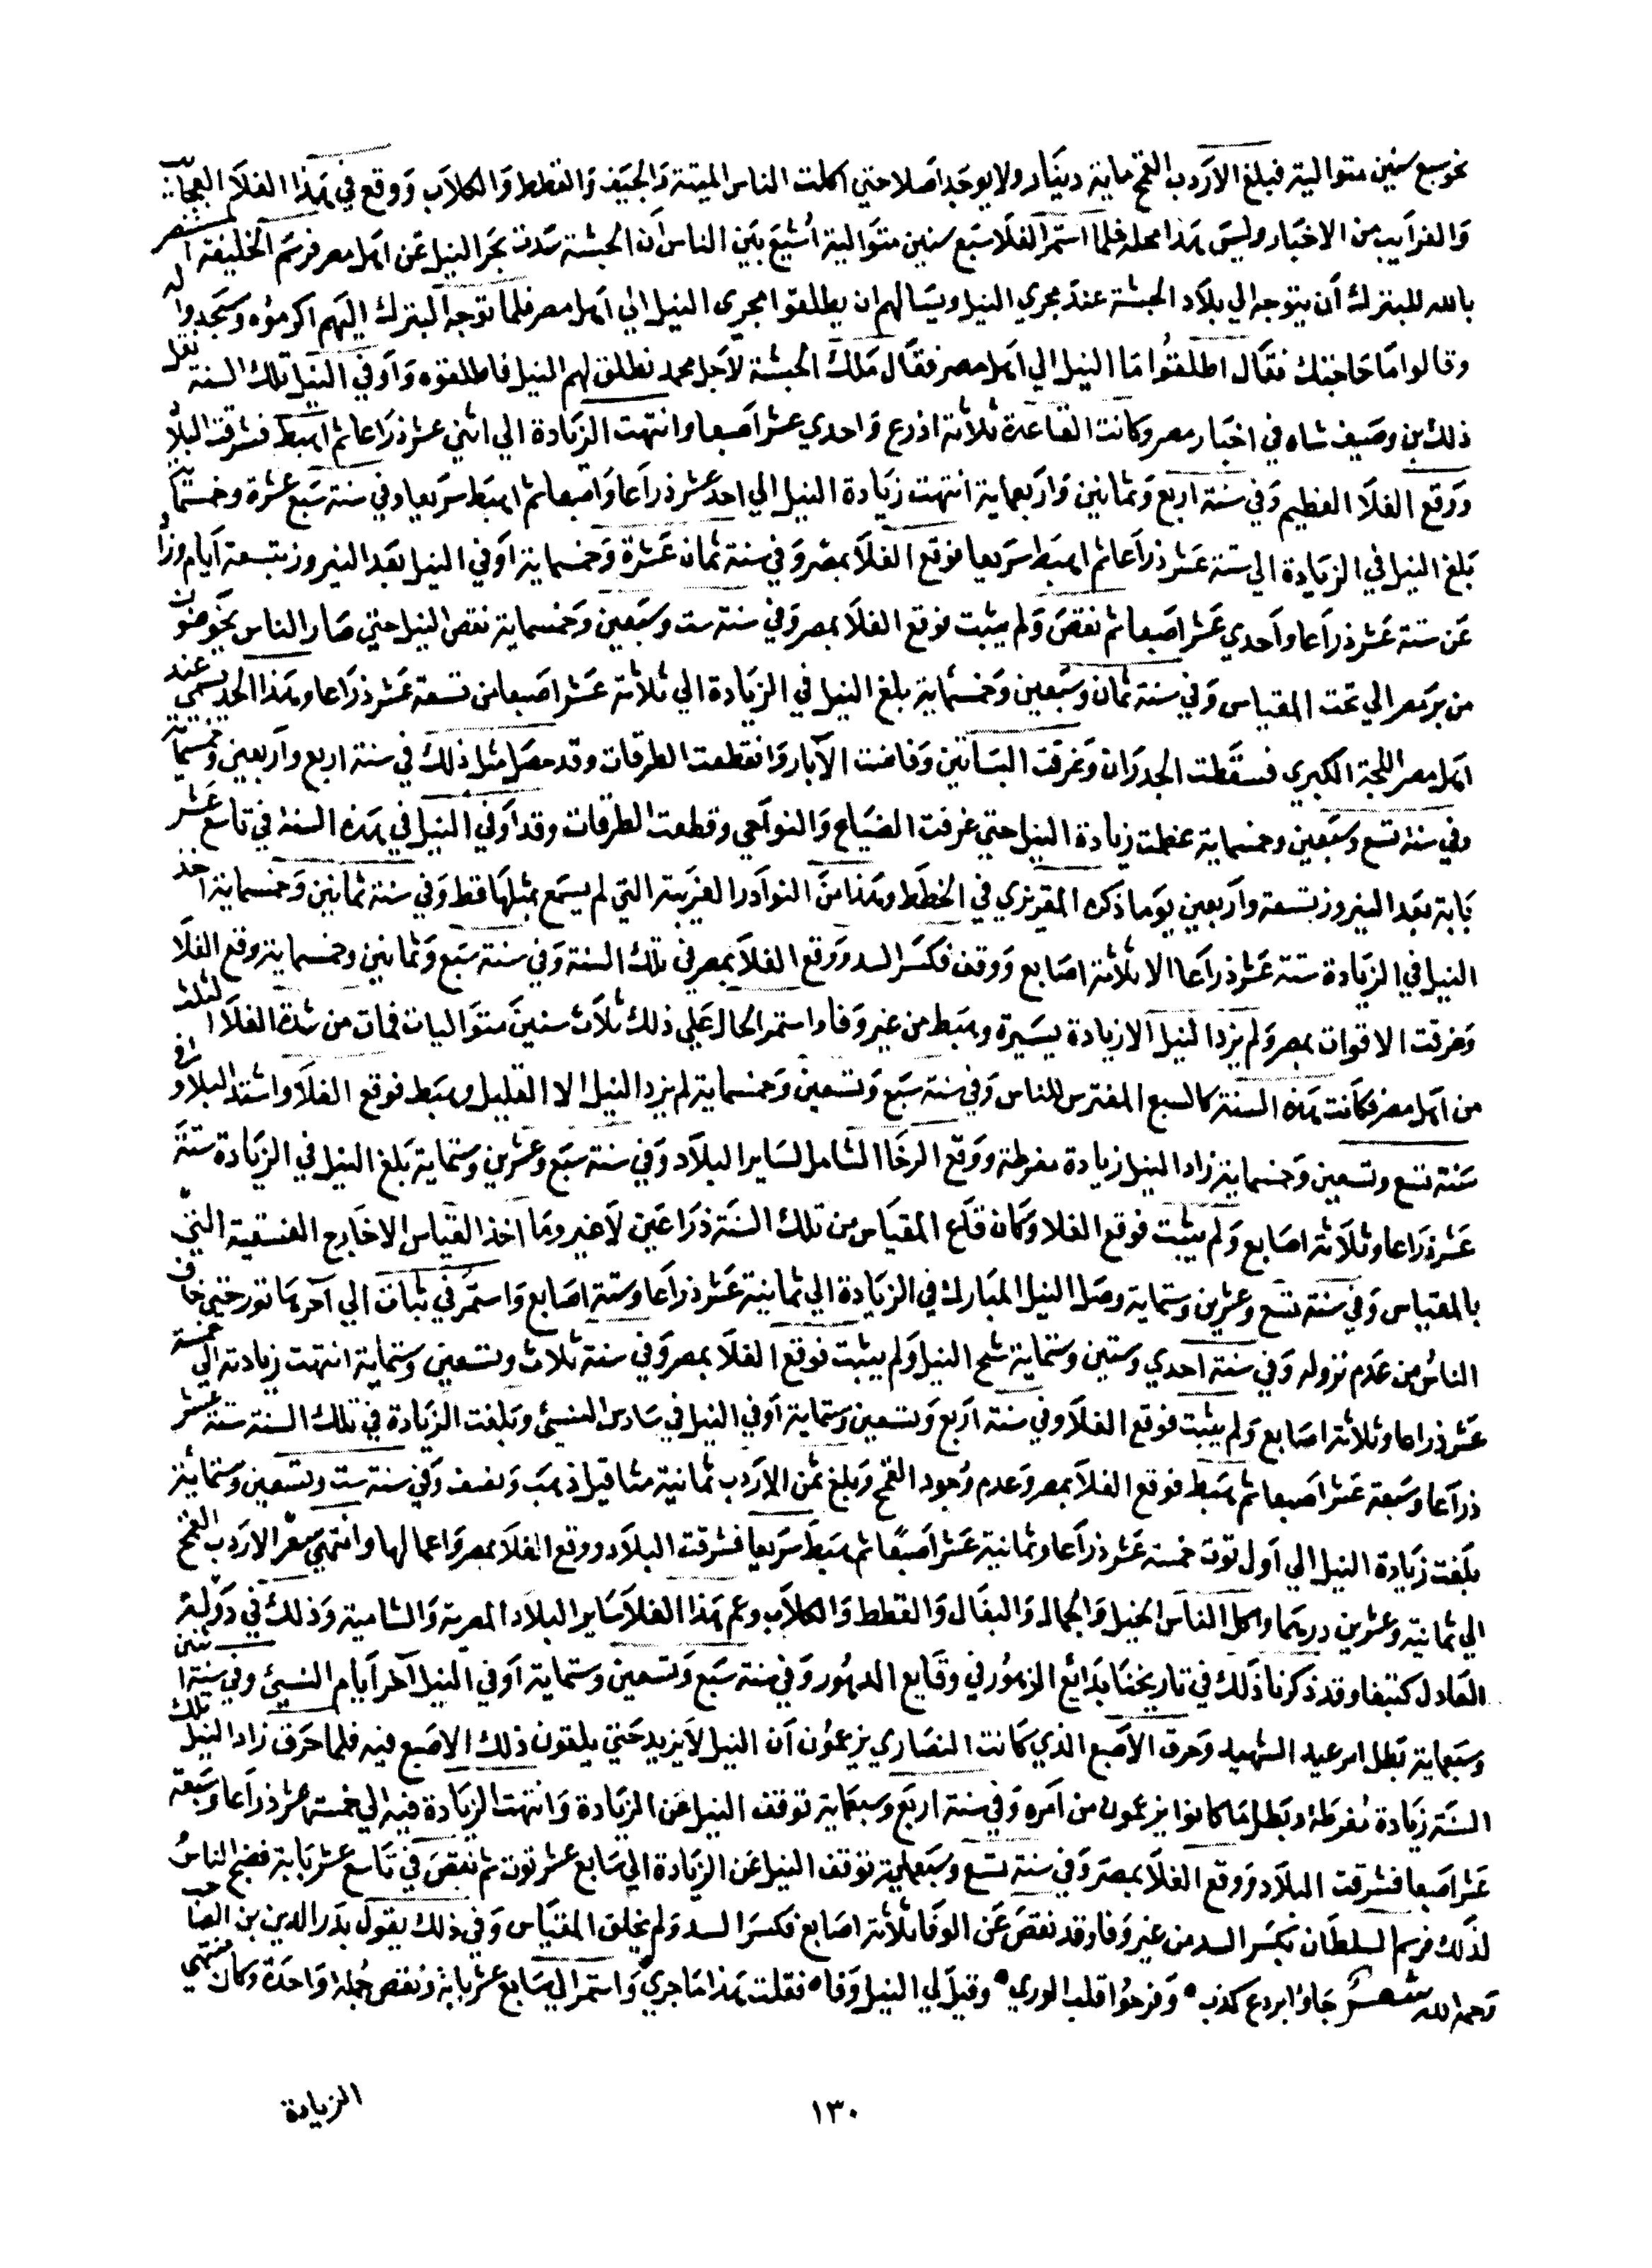 نحو سبع سنين متوالية فبلغ الاردب القمح ماية دينار ولا يوجد اصلا حتي اكلت الناس الميتة والجيف والقطط والكلاب ووقع في هذا الغلا العجايب
والغرايب من الاخبار وليس هذا محله فلما استمر الغلا سبع سنين متوالية اشيع بين الناس ان الحبشة سدت بحر النيل عن اهل مصر فرسم الخليفة المستنصر
بالله للبترك ان يتوجه الي بلاد الحبشة عند مجري النيل ويسالهم ان يطلقوا مجري النيل الي اهل مصر فلما توجه البترك اليهم اكرموه وسجدوا له
وقالوا ما حاجتك فقال اطلقوا ما النيل الي اهل مصر فقال ملك الحبشة لاجل محمد نطلق لهم النيل فاطلقوه واوفي النيل تلك السنة نقل
ذلك بن وصيف شاه في اخبار مصر وكانت القاعدة ثلاثة اذرع واحدي عشر اصبعا وانتهت الزيادة الي اثني عشر ذراعا ثم اهبط فشرقت البلاد
ووقع الغلا العظيم وفي سنة اربع وثمانين واربعماية انتهت زيادة النيل الي احد عشر ذراعا واصبعا ثم اهبط سريعا وفي سنة سبع عشرة وخمسماية
بلغ النيل في الزيادة الي ستة عشر ذراعا ثم اهبط سريعا فوقع الغلا بمصر وفي سنة ثمان عشرة وخمسماية اوفي النيل بعد النيروز بتسعة ايام وزاد
عن ستة عشر ذراعا واحدي عشر اصبعا ثم نقص ولم يثبت فوقع الغلا بمصر وفي سنة ست وسبعين وخمسماية نقص النيل حتي صار الناس يخوضون
من بر مصر الي تحت المقياس وفي سنة ثمان وسبعين وخمسماية بلغ النيل في الزيادة الي ثلاثة عشر اصبعا من تسعة عشر ذراعا وهذا الحد يسمي عند
اهل مصر اللجة الكبري فسقطت الجدران وغرقت البساتين وفاضت الآبار وانقطعت الطرقات وقد حصل مثل ذلك في سنة اربع واربعين وخمسماية
وفي سنة تسع وسبعين وخمسماية عظمت زيادة النيل حتي غرقت الضياع والنواحي وقطعت الطرقات وقد اوفي النيل في هذه السنة في تاسع عشر
بابة بعد النيروز بتسعة واربعين يوما ذكره المقريزي في الخطط وهذا من النوادر الغريبة التي لم يسمع بمثلها قط وفي سنة ثمانين وخمسماية اخذ
النيل في الزيادة ستة عشر ذراعا الا ثلاثة اصابع ووقف فكسر السد ووقع الغلا بمصر في تلك السنة وفي سنة سبع وثمانين وخمسماية وقع الغلا
وغرقت الاقوات بمصر ولم يزد النيل الا زيادة يسيرة وهبط من غير وفا واستمر الحال علي ذلك ثلاث سنين متواليات فمات من شدة الغلا الثلث
من اهل مصر فكانت هذه السنة كالسبع المفترس للناس وفي سنة سبع وتسعين وخمسماية لم يزد النيل الا القليل وهبط فوقع الغلا واشتد البلا وفي
سنة تسع وتسعين وخمسماية زاد النيل زيادة مفرطة ووقع الرخا الشامل لساير البلاد وفي سنة سبع وعشرين وستماية بلغ النيل في الزيادة ستة
عشر ذراعا وثلاثة اصابع ولم يثبت فوقع الغلا وكان قاع المقياس من تلك السنة ذراعين لا غير وما اخذ القياس الا خارج الفسقية التي
بالمقياس وفي سنة تسع وعشرين وستماية وصل النيل المبارك في الزيادة الي ثمانية عشر ذراعا وستة اصابع واستمر في ثبات الي آخر هاتور حتي خاف
الناس من عدم نزوله وفي سنة احدي وستين وستماية شح النيل ولم يثبت فوقع الغلا بمصر وفي سنة ثلاث وتسعين وستماية انتهت زيادته الي خمسة
عشر ذراعا وثلاثة اصابع ولم يثبت فوقع الغلا وفي سنة اربع وتسعين وستماية اوفي النيل في سادس النسيئ وبلغت الزيادة في تلك السنة ستة عشر
ذراعا وسبعة عشر اصبعا ثم هبط فوقع الغلا بمصر وعدم وجود القمح وبلغ ثمن الاردب ثمانية مثاقيل ذهب ونصف وفي سنة ست وتسعين وستماية
بلغت زيادة النيل الي اول توت خمسة عشر ذراعا وثمانية عشر اصبعا ثم هبط سريعا فشرقت البلاد ووقع الغلا بمصر واعمالها وانتهي سعر الاردب القمح
الي ثمانية وعشرين درهما واكل الناس الخيل والجمال والبغال والقطط والكلاب وعم هذا الغلا ساير البلاد المصرية والشامية وذلك في دولة
العادل كتبغا وقد ذكرنا ذلك في تاريخنا بدائع الزهور في وقايع الدهور وفي سنة سبع وتسعين وستماية اوفي النيل آخر ايام النسيئ وفي سنة اثنين
وسبعماية بطل امر عيد الشهيد وحرق الاصبع الذي كانت النصاري يزعمون ان النيل لا يزيد حتي يلقون ذلك الاصبع فيه فلما حرق زاد النيل تلك
السنة زيادة مفرطة وبطل ما كانوا يزعمون من امره وفي سنة اربع وسبعماية توقف النيل عن الزيادة وانتهت الزيادة فيه الي خمسة عشر ذراعا وسبعة
عشر اصبعا فشرقت البلاد ووقع الغلا بمصر وفي سنة تسع وسبعماية توقف النيل عن الزيادة الي سابع عشر توت ثم نقص في تاسع عشر بابة فضج الناس
لذلك فرسم السلطان بكسر السد من غير وفا وقد نقص عن الوفا ثلاثة اصابع فكسر السد ولم يخلق المقياس وفي ذلك يقول بدر الدين بن الصاحب
رحمه الله شعر جاؤا بردع كذب ه وفرحوا قلب الوري ه وقيل لي النيل وفا ه فقلت هذا ما جري واستمر الي سابع عشر بابة ونقص جملة واحدة وكان منتهي
الزيادة
١٣٠